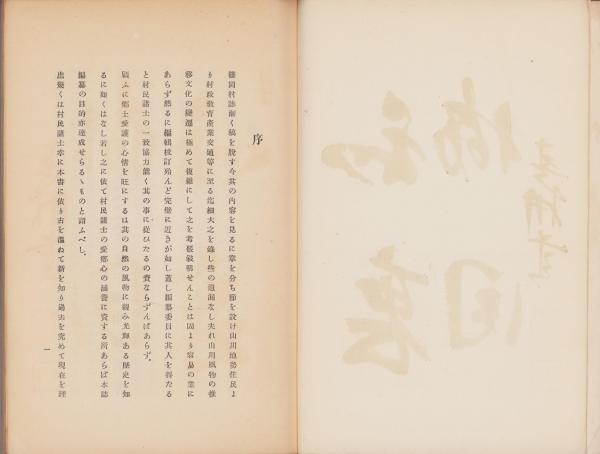 序
篠岡村誌漸く稿を脱す今其の内容を見るに章を分ち節を設け山川地勢住民よ
り村政敎育產業交通等に至る迄細大之を錄し些の遺漏なし夫れ山川風物の推
移文化の變遷は極めて復雜にして之を考覈敍綴せんことは固より容易の業に
あらず然るに編輯校訂殆んど完璧に近きが如し蓋し編纂委員に其人を得たる
と村民諸士の一致協力能く其の事に從ひたるの賚ならずんばあらず。
顧ふに鄕土愛護の心情を旺にするは其の自然の風物に親み光輝ある歷史を知
るに如くはなし若し之に依て村民諸士の愛鄕心の涵養に資する所あらば本誌
編纂の目的亦達成せらるゝものと謂ふべし。
庶幾くは村民諸士幸に本書に依り古を溫ねて新を知り過去を究めて現在を理
一